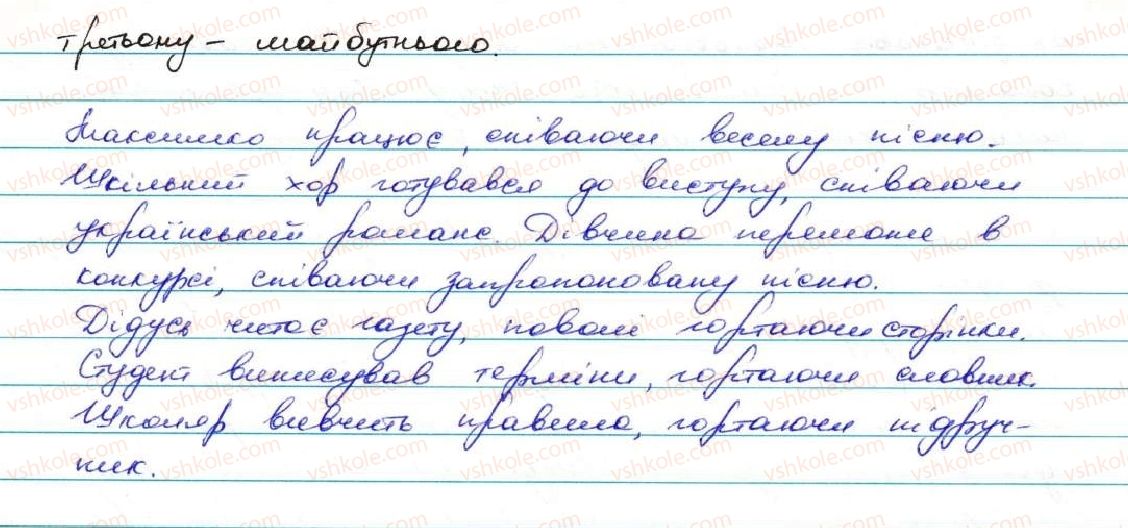 третьому – майбутнього.
Максимко працює, співаючи веселу пісню.
Шкільний хор готувався до виступу, співаючи
український романс. Дівчина переможе в
конкурсі, співаючи запропоновану пісню.
Дідусь читає газету, поволі гортаючи сторінки.
Студент виписував терміни, гортаючи словник.
Школяр вивчить правило, гортаючи підруч-
ник.